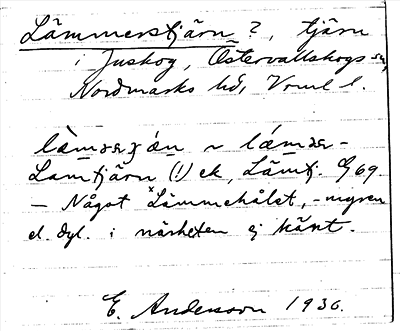 Lämmerstjärn?, tjärn
i Juskog, Östervallskogs sn,
Nordmarks hd, Vrml l.
lämmerstjän ~ lámmer-
Lamtjärn (!) ek, Lämtj. G 69.
— Något "Lämmehålet, -myren
el. dyl. i närheten ej känt.
E. Andersson 1936.